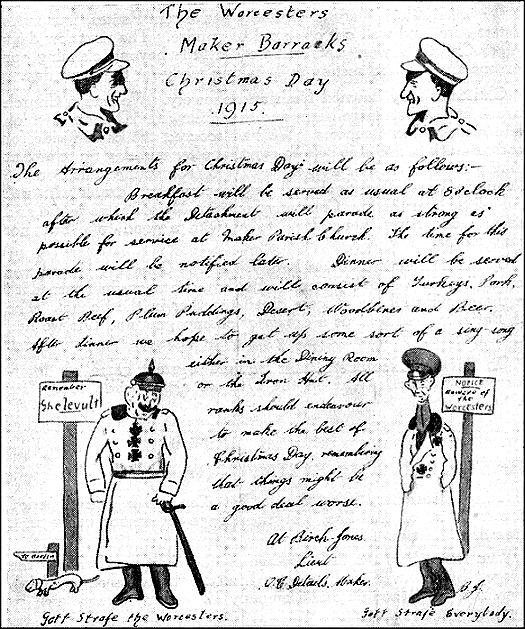 The Worcesters
Maker Barracks
Christmas Day
1915.
The Arrangements for Christmas Day will be as follows:-
Breakfast will be served as usual at 8 o'clock
after which the Detachment will parade as strong as
possible for service at Maker Parish Church. The time for this
parade will be notified later. Dinner will be served
at the usual time and will consist of Turkeys, Pork,
Roast Beef, Plum Puddings, Desert, Woodbines and Beer.
After dinner we hope to get up some sort of a sing-song
either in the Dining Room
or the Iron Hut. All
ranks should endeavour
to make the best of
Christmas Day, remembering
that things might be
a good deal worse.
At Birch-Jones
Lieut
O.C. Details. Maker.
Remember
Ghelevult
To Berlin
NOTICE
Beware of
The
Worcesters
B.J.
Gott Strafe the Worcesters.
Gott Strafe Everybody.